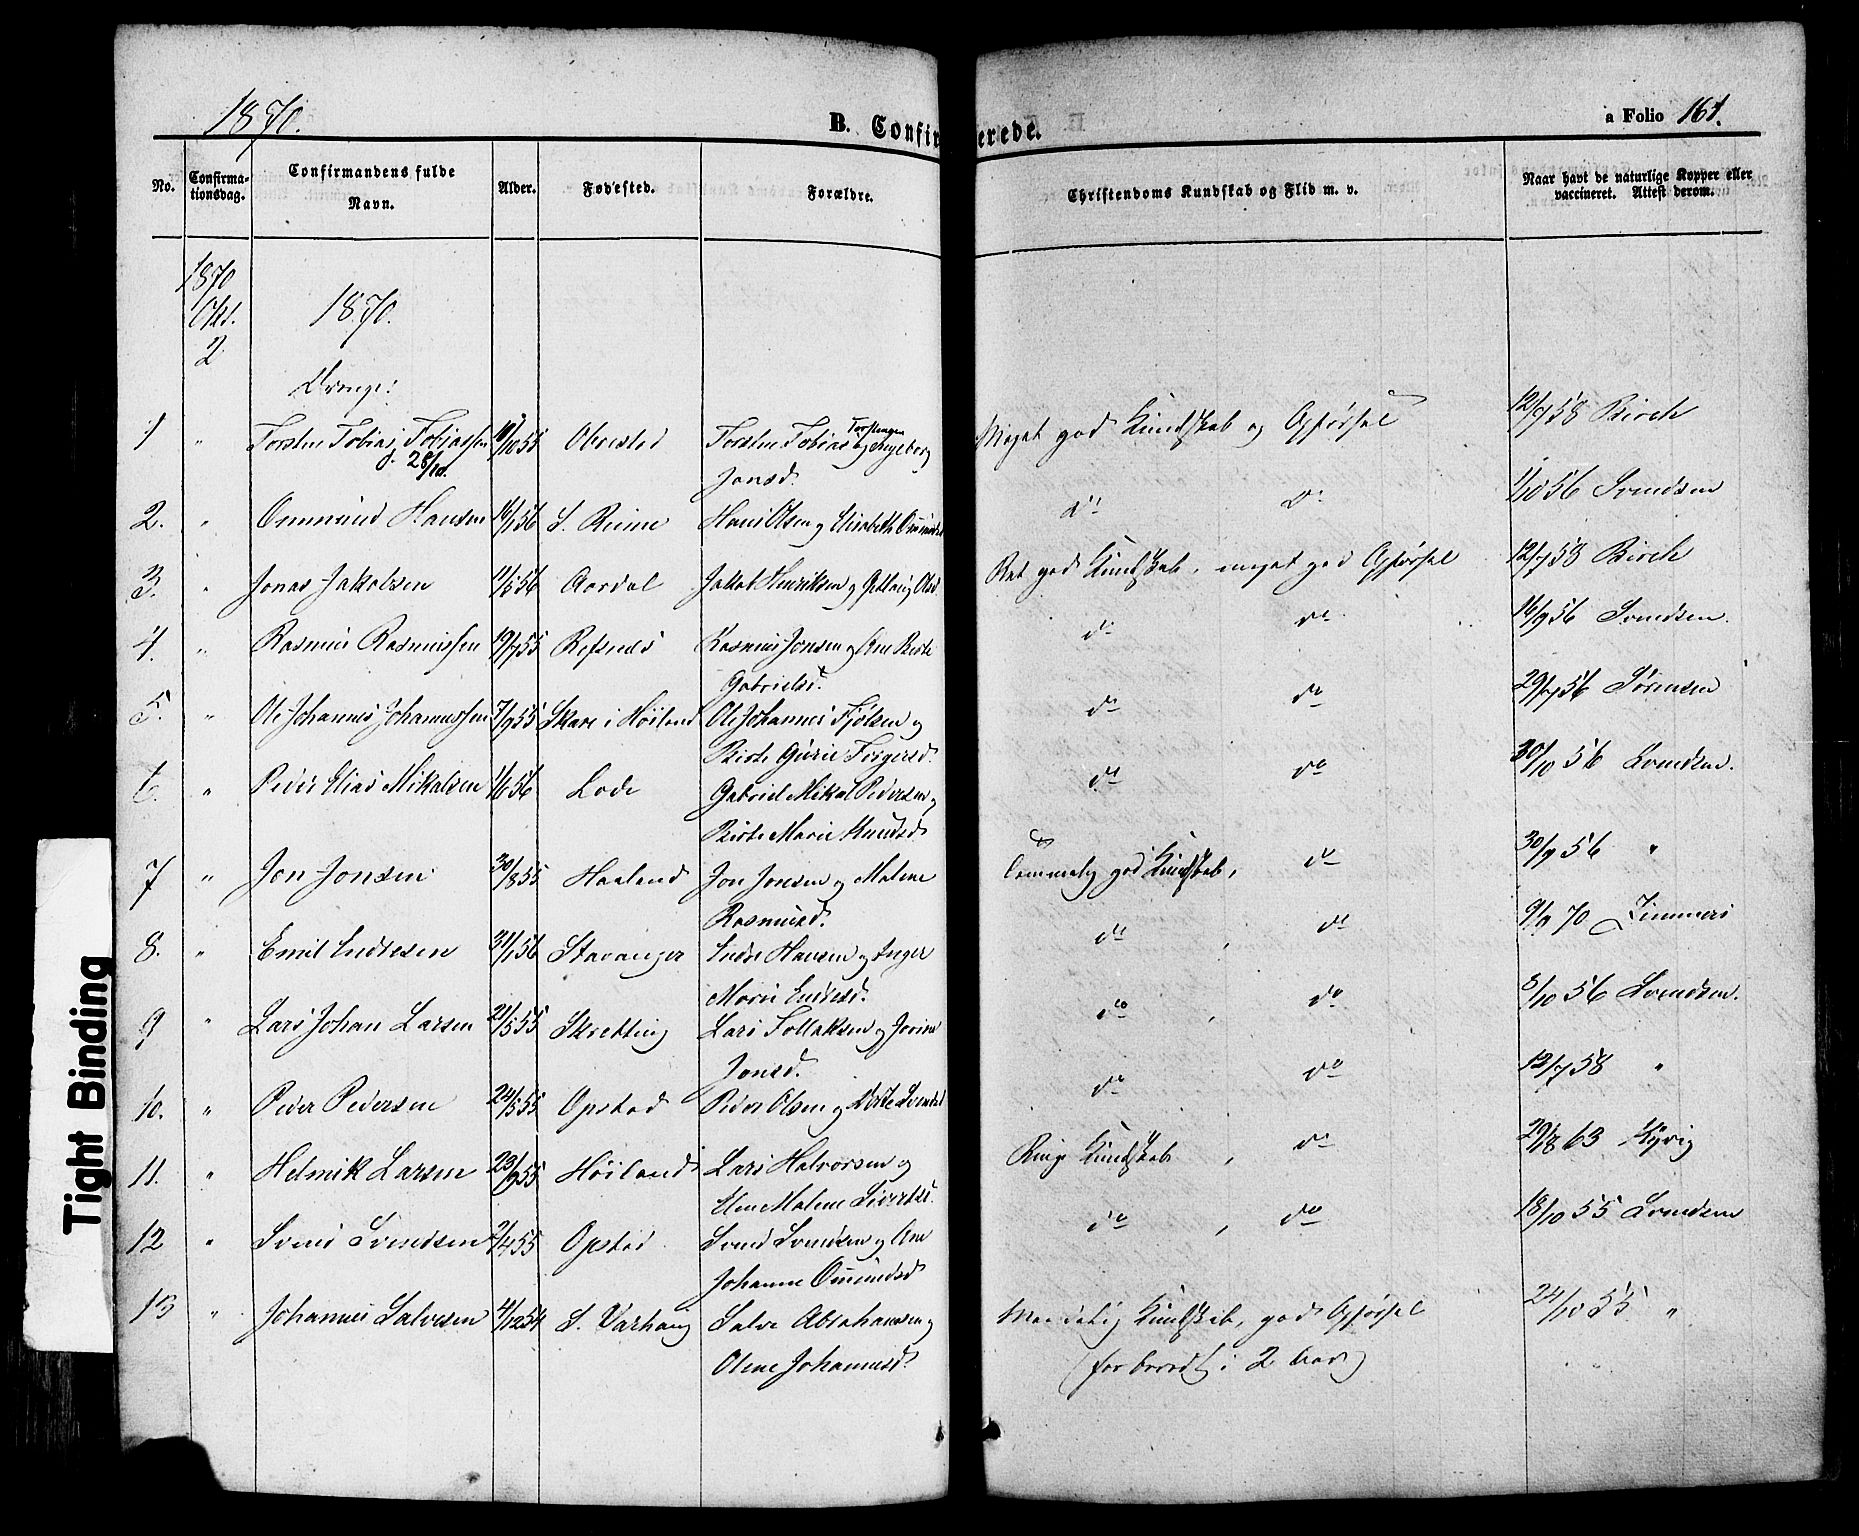 1870.
B. Confirmerede.
a Folio 161.
No.
Confirmationsdag.
Confirmandens fulde Navn.
Alder.
Fødested.
Forældre.
Christendoms Kundskab og Flid m. v.
Naar havt de naturlige Kopper eller vaccineret. Attest derom.
1870
Okt.
2
1870.
Drenge:
1 " Torsten Tobias Tobiassen 55 Obrestad Torsten Tobias Torstensen og Ingeborg Meget god Kundskab og Opførsel 12/7 58 Birch
d. 28/10.
Jonsd.
2. " Ommund Hansen 16/1 56 S. Reime Hans Olsen og Elisabeth Ommundsd do do 1/10 56 Svendsen
3. " Jonas Jakobsen 11/5 56 Aardal Jakob Henriksen og Olsd Ret god Kundskab, meget god Opførsel 12/7 58 Birch
4. " Rasmus Rasmussen 19/7 55 Refsnes Rasmus Jonsen og Ane Birte do do 16/9 56 Svendsen.
Gabrielsd.
5. " Ole Johannes Johannessen 7/9 55 Skare i Høiland Ole Johannes Fjølsen og do do 29/7 56 Sørensen
Birte Gurie Torgersd.
6. " Peder Elias Mikalsen 1/6 56 Lode Gabriel Mikal Pedersen og do do 30/10 56 Svendsen.
Birte Marie Knudsd
7 " Jon Jonsen 30/8 55 Haaland Jon Jonsen og Malene Temmelig god Kundskab, do 30/9 56 "
Rasmusd.
8. " Emil Endresen 31/1 56 Stavanger Endre Hansen og Inger do , do 9/9 70 Zimmers
Marie Endresd.
9 " Lars Johan Larsen 21/5 55 Skretting Lars Tollaksen og Jorine do , do 8/10 56 Svendsen.
Jonsd.
10. " Peder Pedersen 24/5 55 Opstad Peder Olsen og Berte Svendsd do do 12/7 58 "
11. " Helmik Larsen 23/9 55 Høiland Lars Halvorsen og Ringe Kundskab , do 29/8 63 Kyvig
Elen Malene Sivertsd.
12 " Svend Svendsen 2/4 55 Opstad. Svend Svendsen og Ane do , do 18/10 55 Svendsen
Johanne Omundsd
13 " Johannes Salvesen 4/12 54 S. Varhaug Salve Abrahamsen og Maadelig Kundskab, god Opførsel 24/10 55 "
Olene Johannesd.
(forberedt i 2 Aar)
Tight Binding